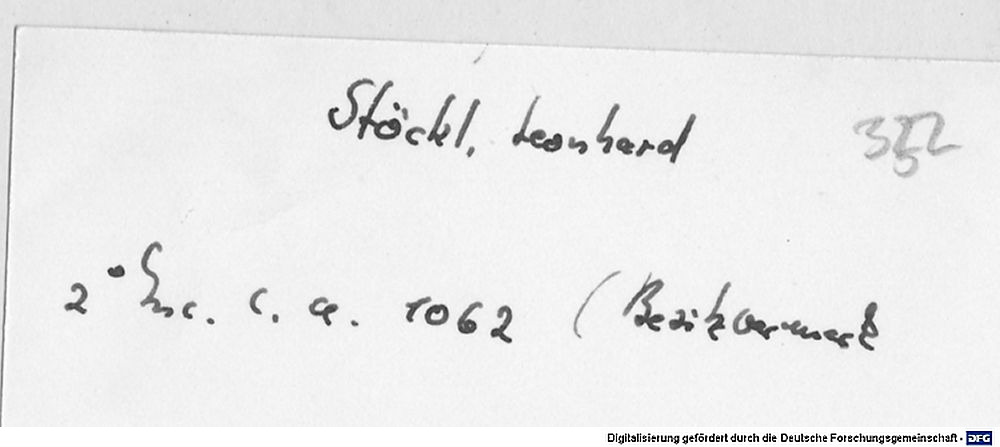 Stöckl, Leonhard
2° Inc. c. a. 1062 (Besitzvermerk
Digitalisierung gefördert durch die Deutsche Forschungsgemeinschaft - DFG